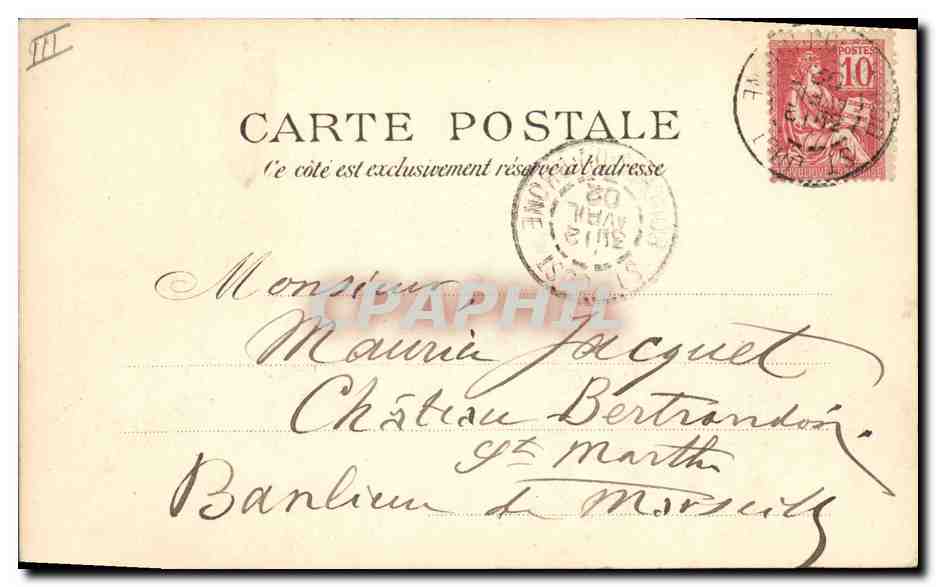 III
POSTES
10
CARTE POSTALE
Ce côté est exclusivement réservé à l'adresse
30 AVRIL 02
CPAPHIL
Monsieur,
Maurice Jacquet
Château Bertrandon.
St Marthe
Banlieue de Marseille